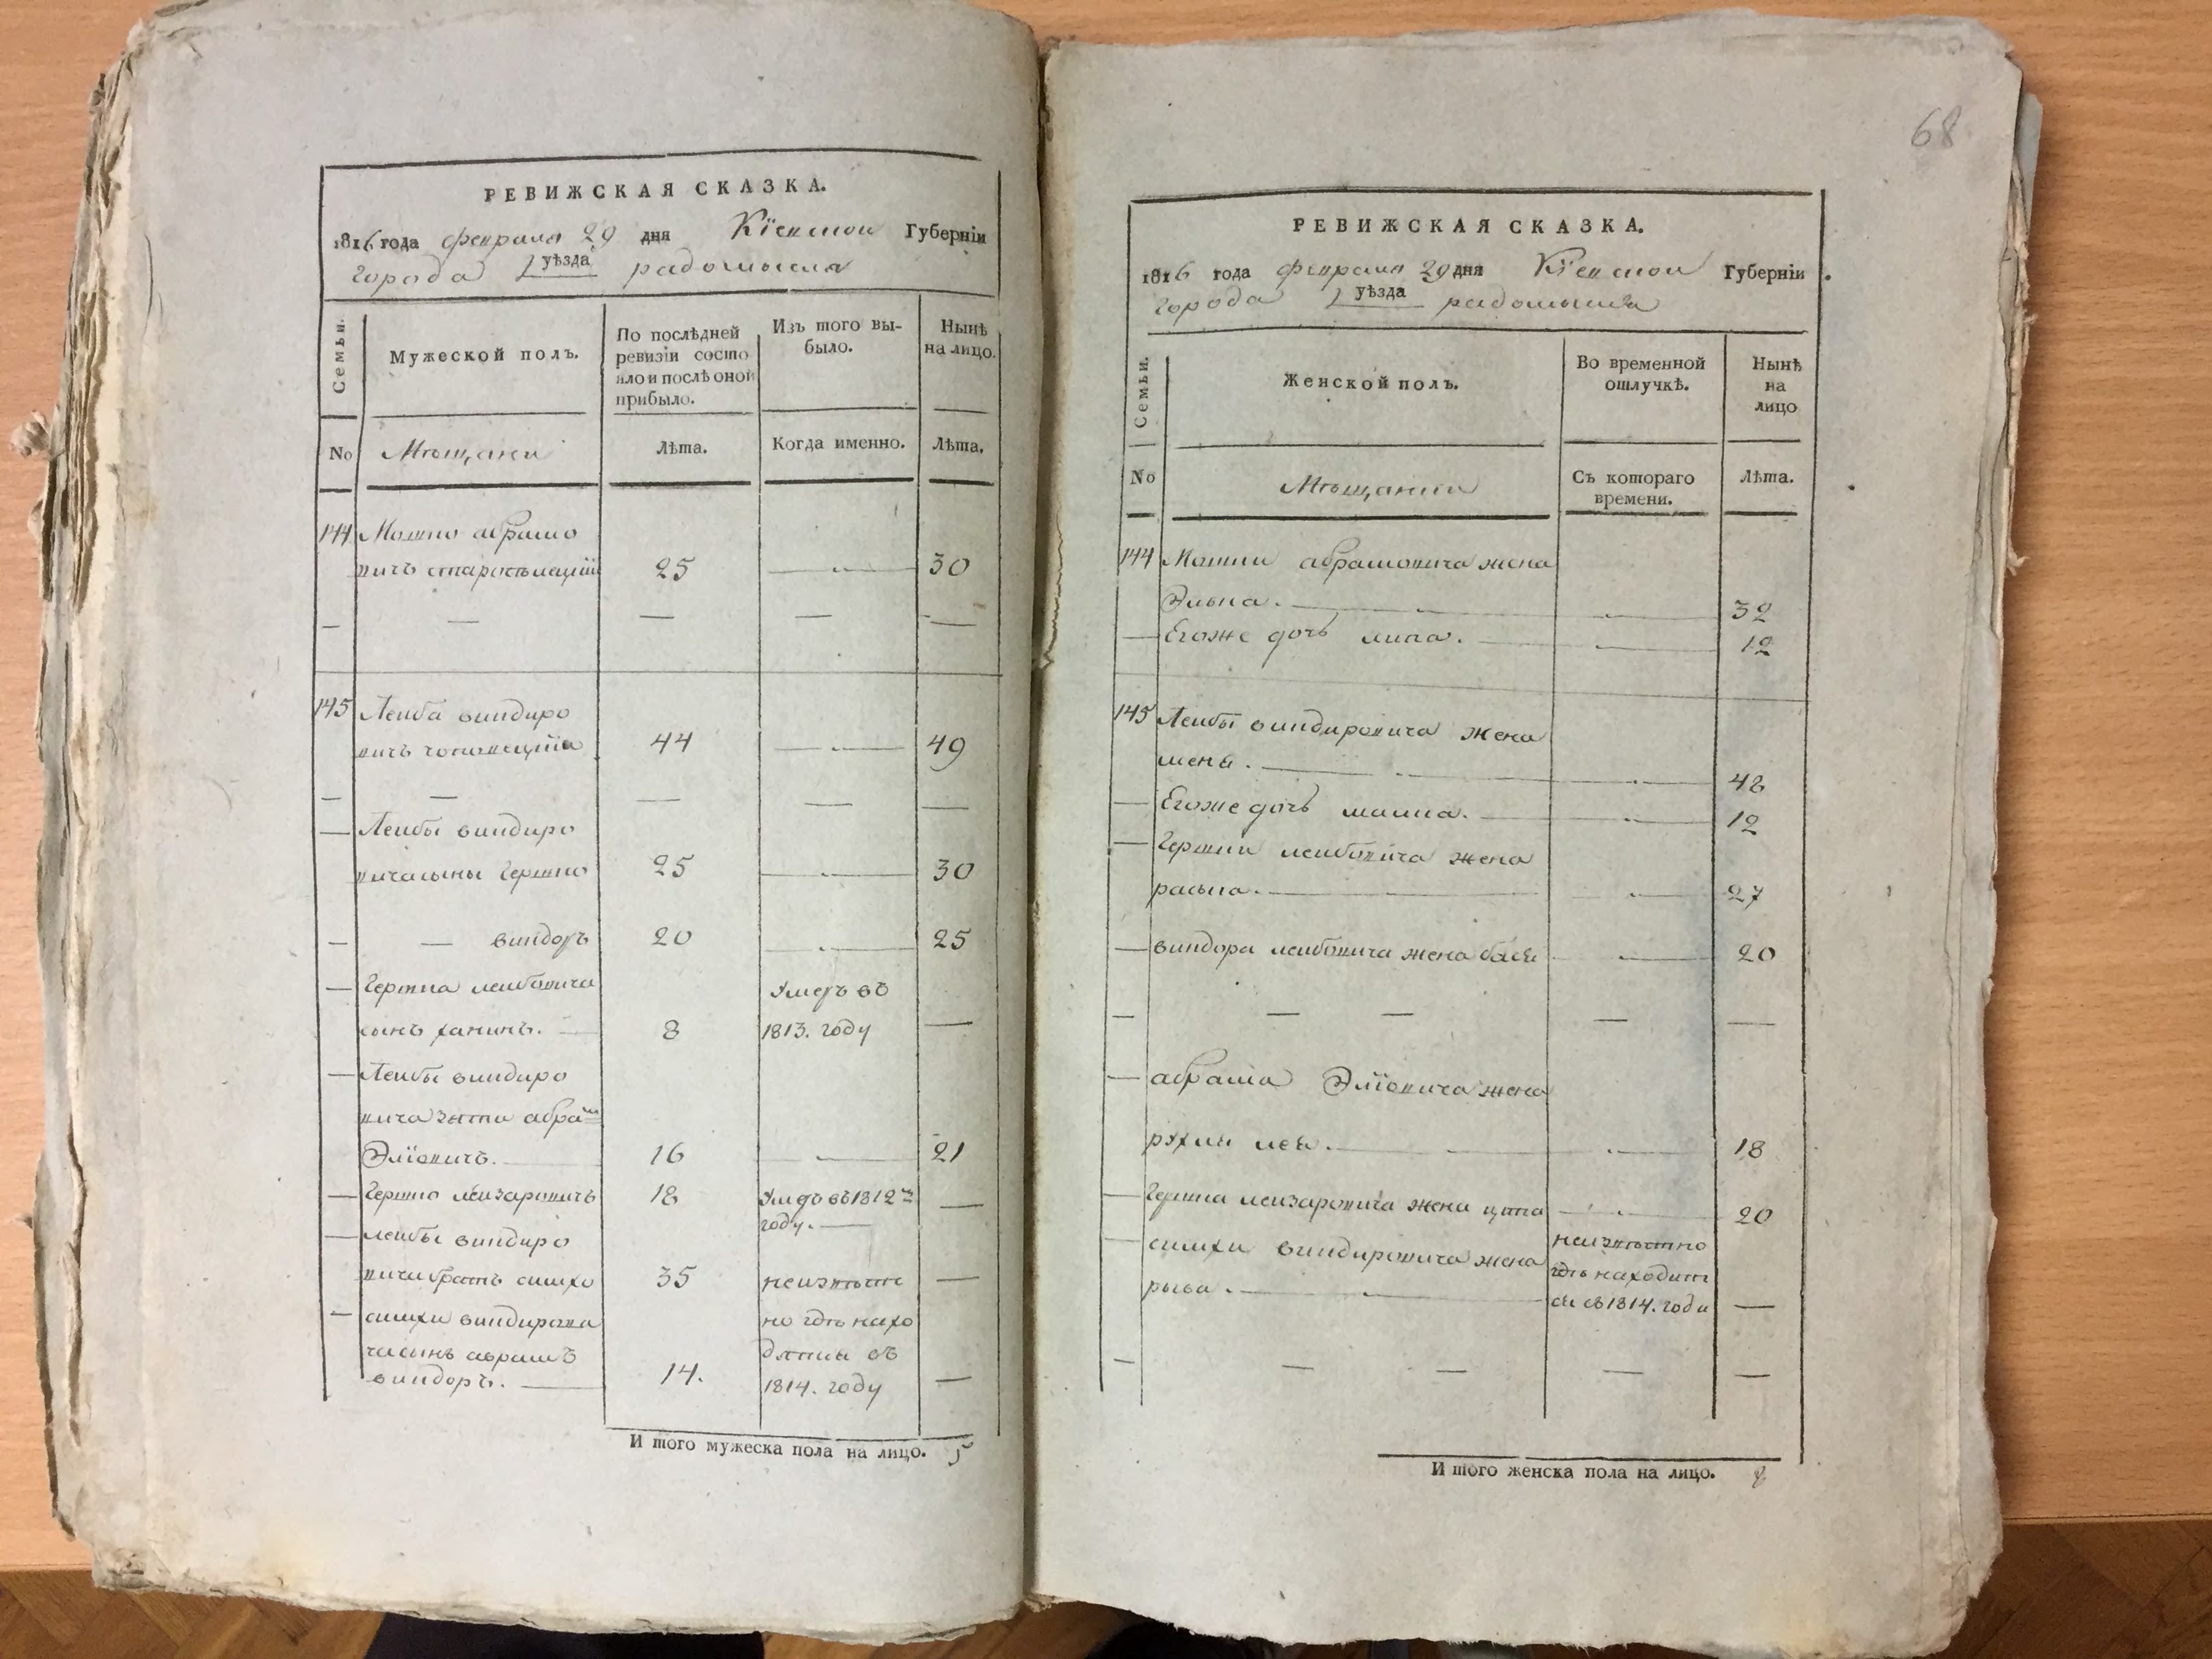 РЕВИЖСКАЯ СКАЗКА.
1816 года февраля 29 дня Кіевской Губерніи
города уѣзда радомысля
Семьи.
Мужеской полъ.
По послѣдней
ревизіи состо
яло и послѣ оной
прибыло.
Изъ того вы-
было.
Нынѣ
на лицо.
No
Мѣщани
Лѣта.
Когда именно.
Лѣта.
144 Мошко абрамо
вичъ 25 30
145 Лейба виндиро
вичъ 44 49
Лейбы виндиро
вича сыны Гершко 25 30
виндоръ 20 25
Гершка лейбовича Умеръ въ
сынъ ханинъ. 8 1813. году
Лейбы виндиро
вича зяти абрам
Эліовичъ. 16 21
Гершко лейзаровичъ 18 Умеръ въ 1812м
году.
лейбы виндиро
вича братъ симхо 35 неизвѣст
симхи виндирови но где нахо
ча сынъ аврамъ дятца съ
виндоръ. 14. 1814. году
И того мужеска пола на лицо. 5
68
РЕВИЖСКАЯ СКАЗКА.
1816 года февраля 29 дня Кіевской Губерніи
города уѣзда радомысля
Семьи.
Женской полъ.
Во временной
отлучкѣ.
Нынѣ
на
лицо
No
Мѣщанки
Съ котораго
времени.
Лѣта.
144 Мошки абрамовича жена
Элька. 32
Егоже дочь липа. 12
145 Лейбы виндировича жена
48
Егоже дочь малка. 12
Гершки лейбовича жена
раська. 27
виндора лейбовича жена бася 20
абрама Эліовича жена
рухли лея. 18
Гершка лейзаровича жена ципа 20
симхи виндировича жена неизвѣстно
рывa. где находит
ся съ 1814. года
И того женска пола на лицо. 8